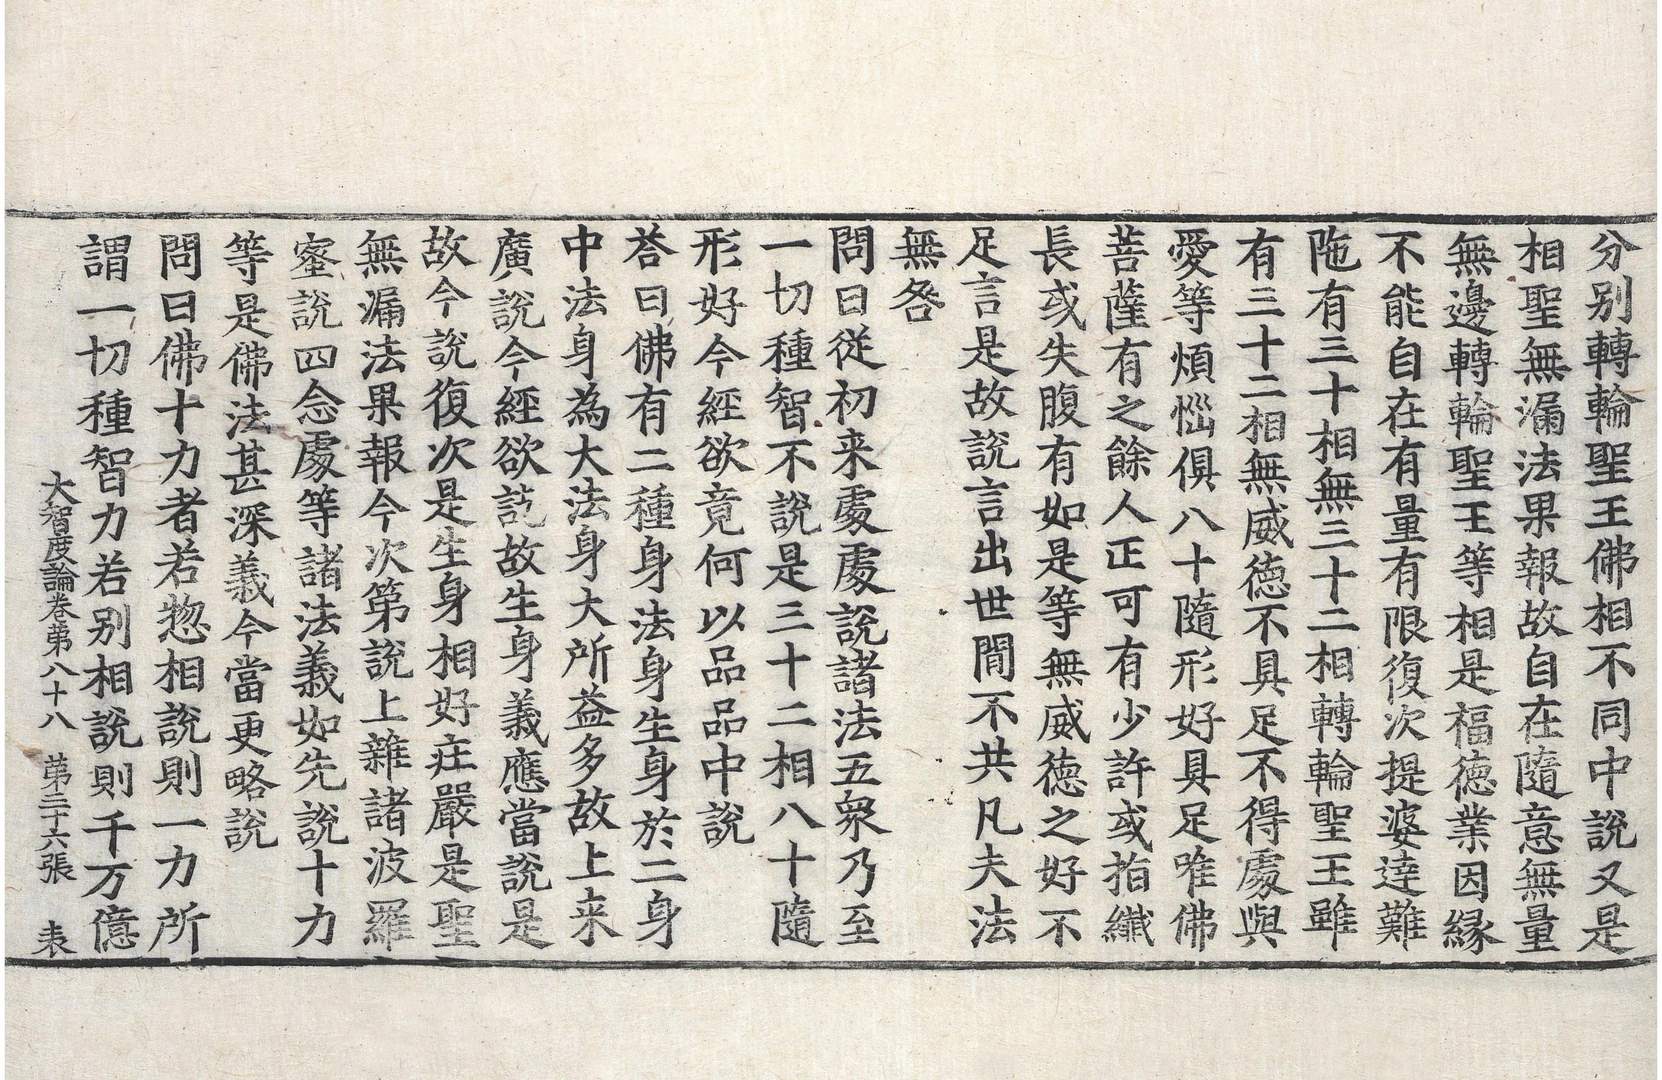 分別轉輪聖王佛相不同中說又是
相聖無漏法果報故自在隨意無量
無邊轉輪聖王等相是福徳業因縁
不能自在有量有限復次提婆達難
陁有三十相無三十二相轉輪聖王雖
有三十二相無威徳不具足不得處與
愛等煩惱俱八十隨形好具足唯佛
菩薩有之餘人正可有少許或指纖
長或失腹有如是等無威徳之好不
足言是故說言出世閒不共凡夫法
無咎
問曰從初来處處說諸法五衆乃至
一切種智不說是三十二相八十隨
形好今經欲竟何以品品中說
荅曰佛有二種身法身生身於二身
中法身為大法身大所益多故上来
廣說今經欲訖故生身義應當說是
故今說復次是生身相好莊嚴是聖
無漏法果報今次第說上雜諸波羅
蜜說四念處等諸法義如先說十力
等是佛法甚深義今當更略說
問曰佛十力者若惣相說則一力所
謂一切種智力若別相說則千万億
大智度論卷苐八十八 苐三十六張 表